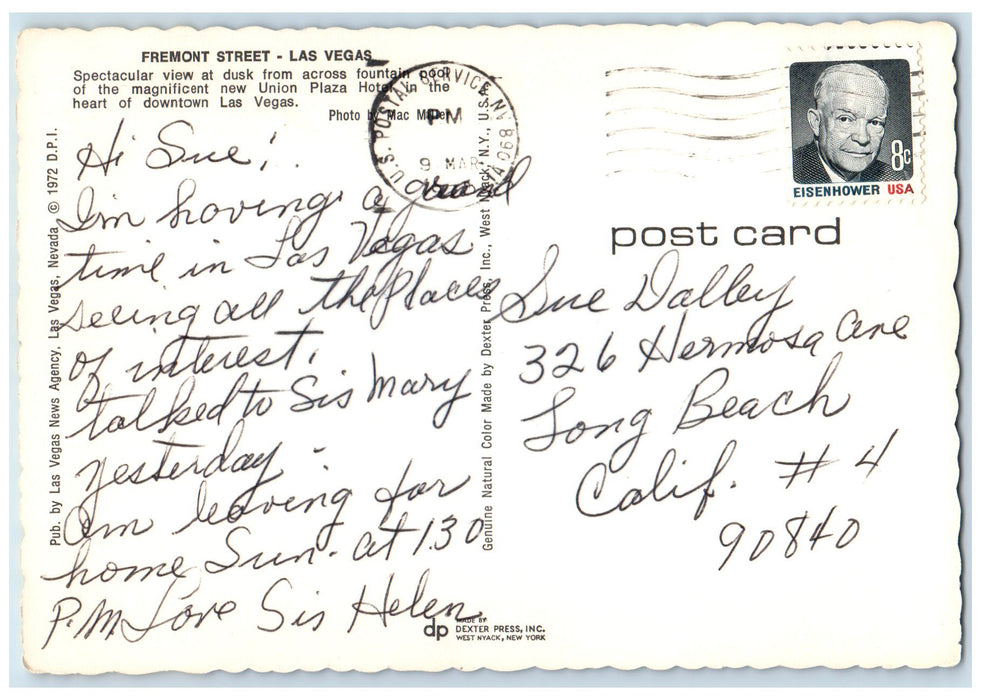 FREMONT STREET - LAS VEGAS
Spectacular view at dusk from across fountain pool
of the magnificent new Union Plaza Hotel in the
heart of downtown Las Vegas.
Photo by Mac Miller
Hi Sue!
I'm having a grand
time in Las Vegas
seeing all the places
of interest.
talked to Sis Mary
yesterday.
Am leaving for
home Sun. at 130
P.M Love Sis Helen
Pub. by Las Vegas News Agency, Las Vegas, Nevada, © 1972 D.P.I.
Genuine Natural Color Made by Dexter Press, Inc., West Nyack, N.Y., U.S.A.
dp
MADE BY
DEXTER PRESS, INC.
WEST NYACK, NEW YORK
U.S. POSTAL SERVICE NV 890
PM
9 MAR
8c
EISENHOWER USA
post card
Sue Dalley
326 Hermosa Ave
Long Beach
Calif. #4
90840